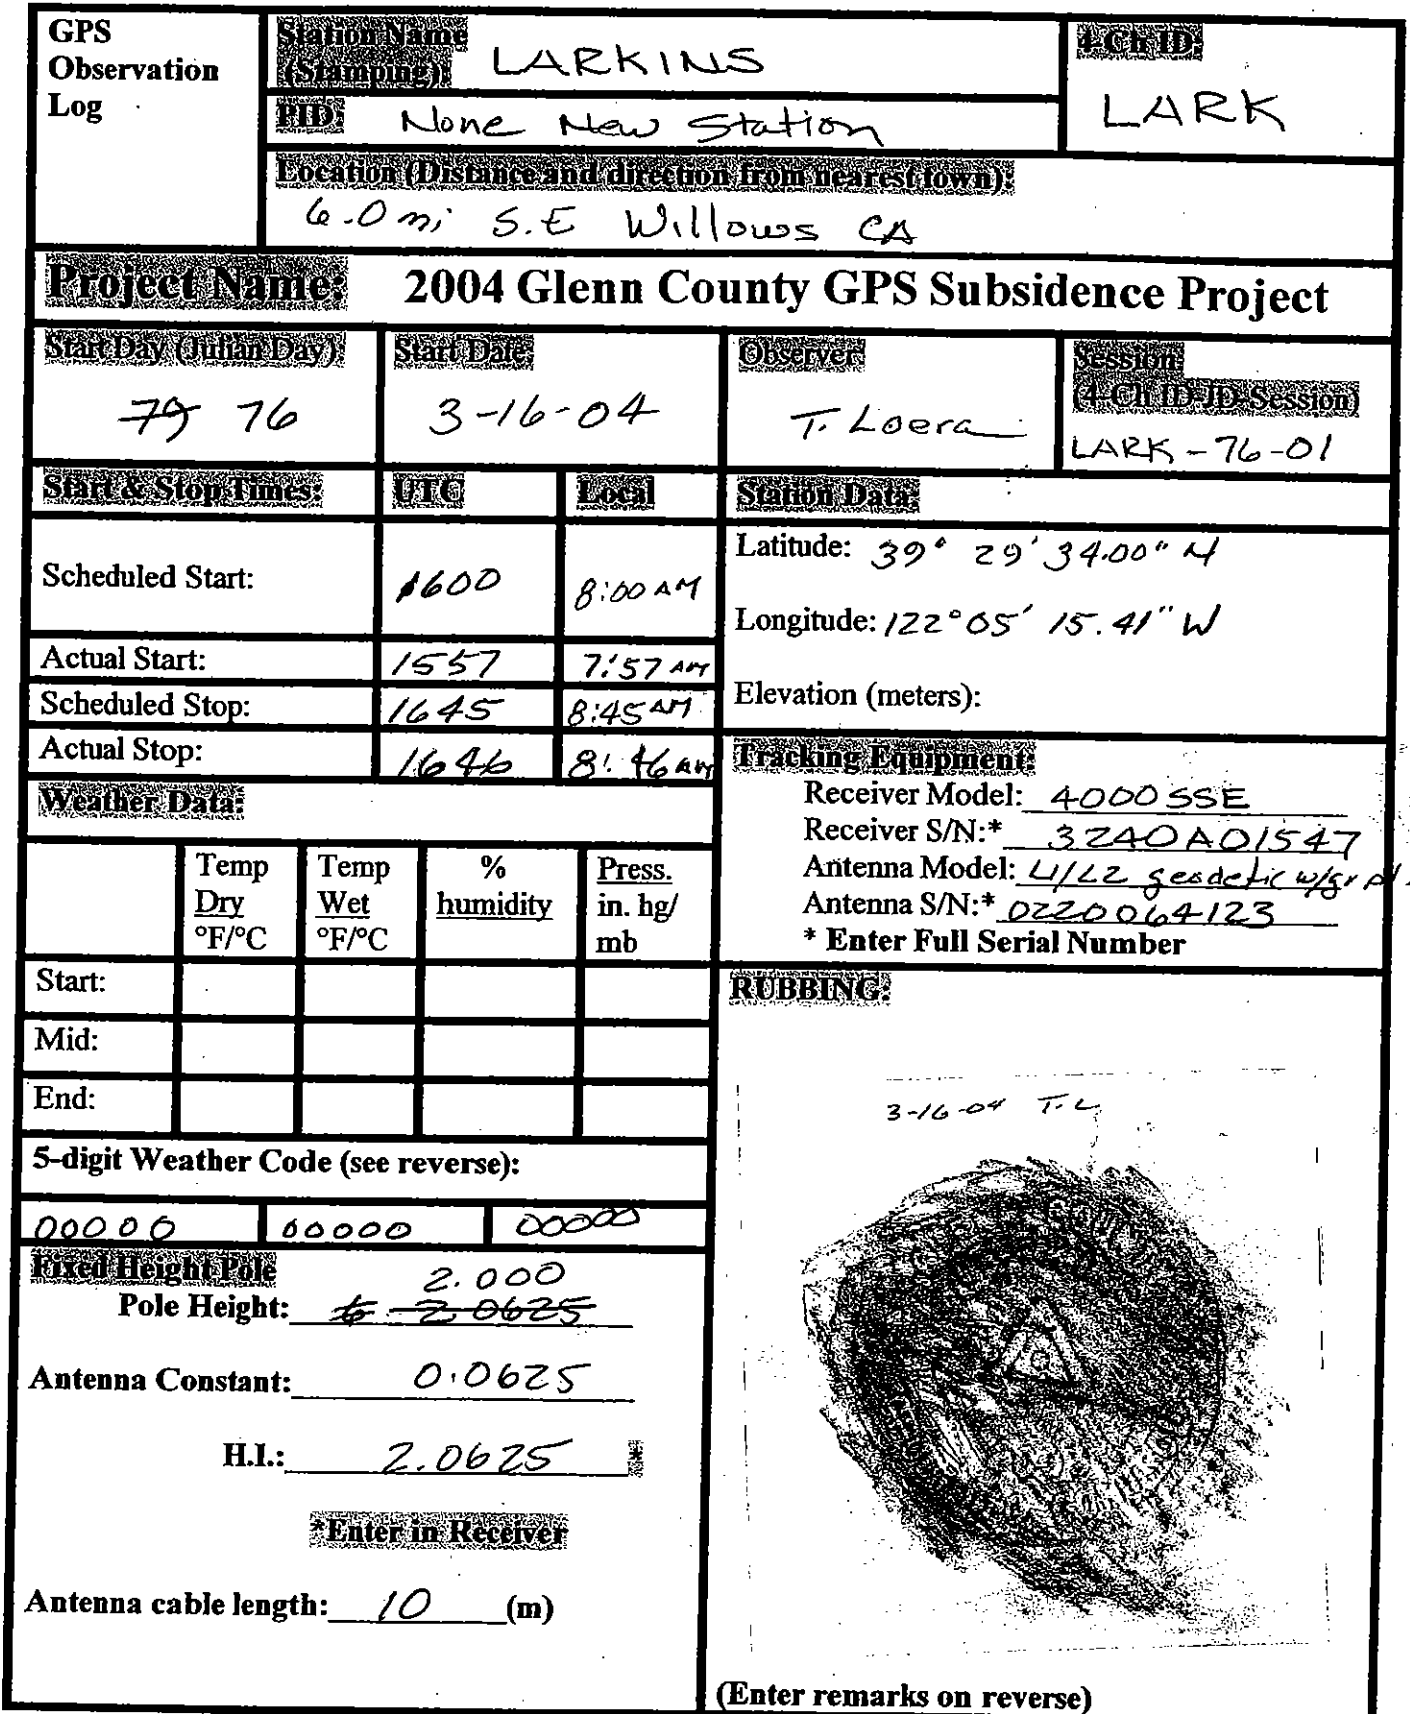 GPS
Observation
Log
Station Name
(Stamping): LARKINS
4-Ch ID:
LARK
PID: None New Station
Location (Distance and direction from nearest town):
6.0 mi S.E Willows CA
Project Name: 2004 Glenn County GPS Subsidence Project
Start Day (Julian Day):
79 76
Start Date:
3-16-04
Observer
T. Loera
Session
(4-Ch ID-JD-Session)
LARK-76-01
Start & Stop Times: UTC Local
Scheduled Start: 1600 8:00 AM
Actual Start: 1557 7:57 AM
Scheduled Stop: 1645 8:45 AM
Actual Stop: 1646 8:46 AM
Station Data:
Latitude: 39° 29' 34.00" N
Longitude: 122° 05' 15.41" W
Elevation (meters):
Tracking Equipment:
Receiver Model: 4000SSE
Receiver S/N:* 3240A01547
Antenna Model: L1/L2 geodetic w/gr pl.
Antenna S/N:* 0220064123
* Enter Full Serial Number
Weather Data:
Temp
Dry
°F/°C
Temp
Wet
°F/°C
%
humidity
Press.
in. hg/
mb
Start:
Mid:
End:
5-digit Weather Code (see reverse):
00000 00000 00000
Fixed Height Pole
2.000
Pole Height: 2.0625
Antenna Constant: 0.0625
H.I.: 2.0625 *
*Enter in Receiver
Antenna cable length: 10 (m)
RUBBING:
3-16-04 T.L.
(Enter remarks on reverse)